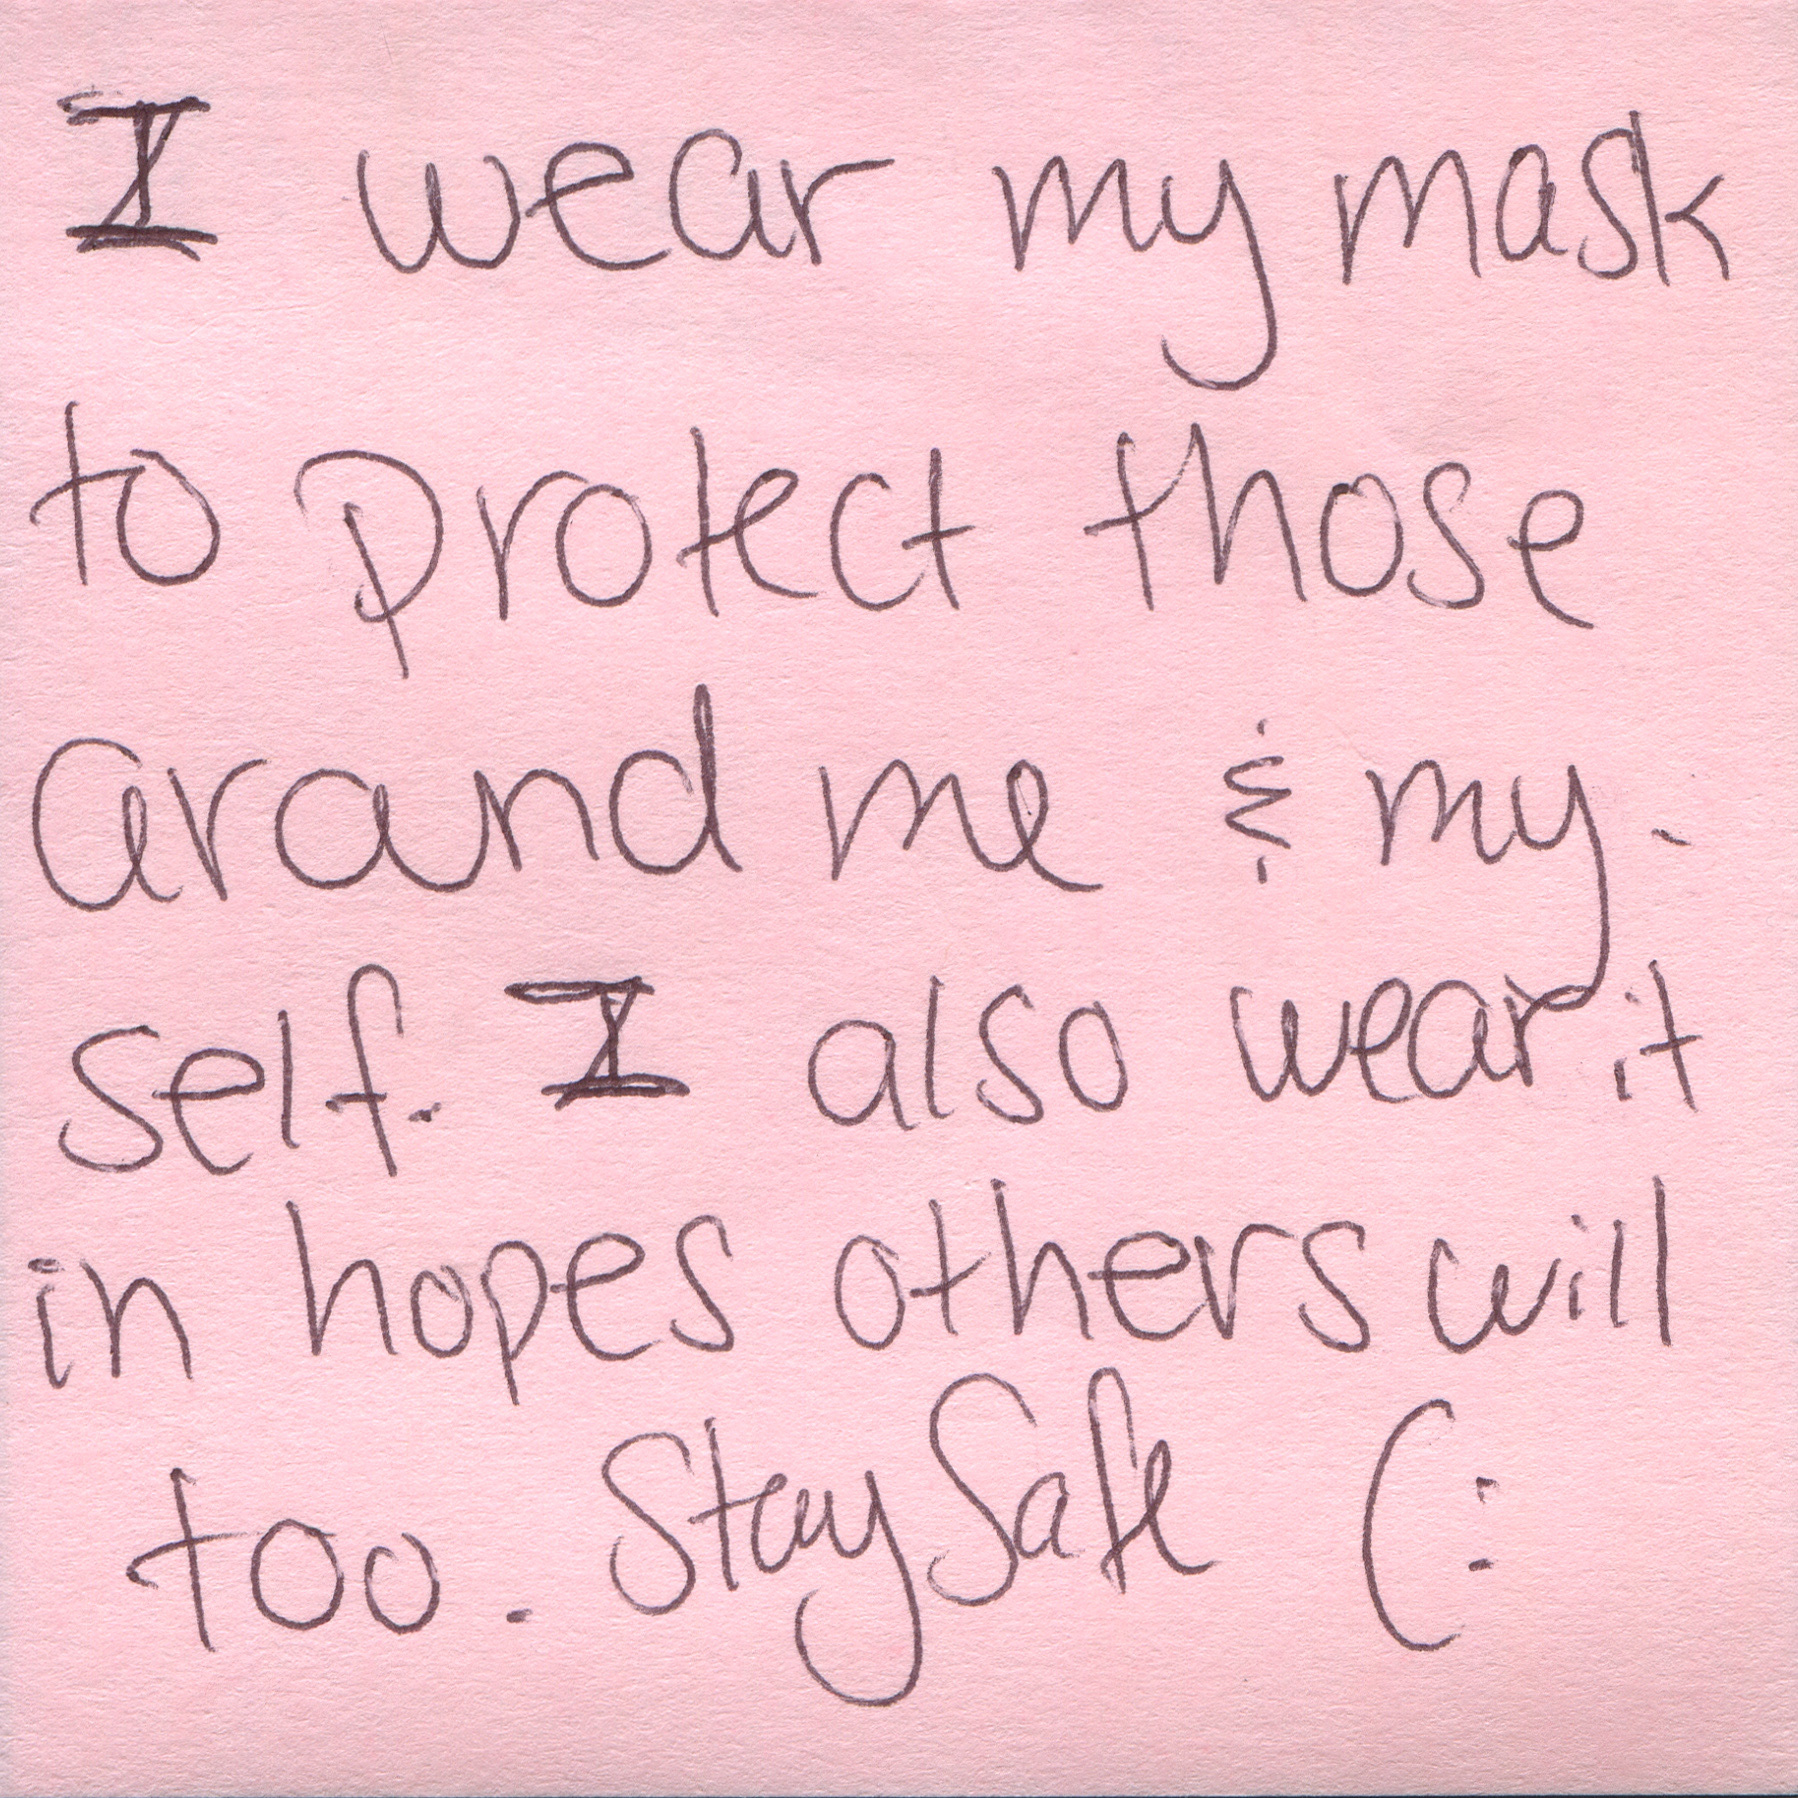 I wear my mask
to protect those
around me & my-
self. I also wear it
in hopes others will
too. Stay Safe (: